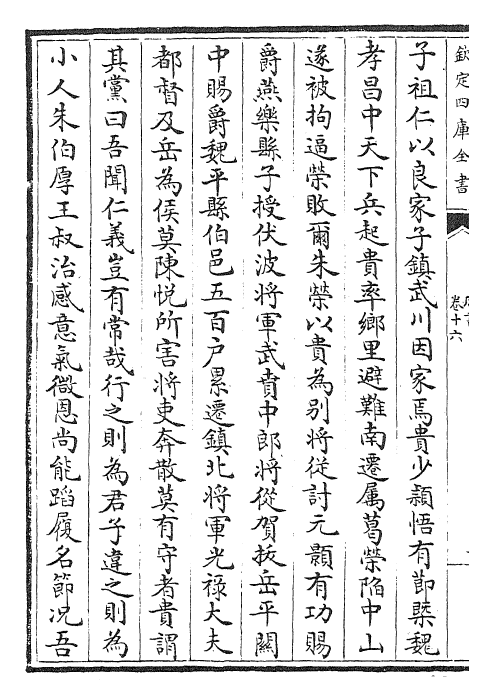 欽定四庫全書
卷十六
子祖仁以良家子鎮武川因家焉貴少頴悟有節槩魏
孝昌中天下兵起貴率鄉里避難南遷属葛榮陷中山
遂被拘逼榮敗爾朱榮以貴為别將從討元顥有功賜
爵燕樂縣子授伏波將軍武賁中郎將從賀拔岳平關
中賜爵魏平縣伯邑五百户累遷鎮北將軍光祿大夫
都督及岳為侯莫陳悦所害將吏奔散莫有守者貴謂
其黨曰吾聞仁義豈有常哉行之則為君子違之則為
小人朱伯厚王叔治感意氣微恩尚能蹈履名節况吾